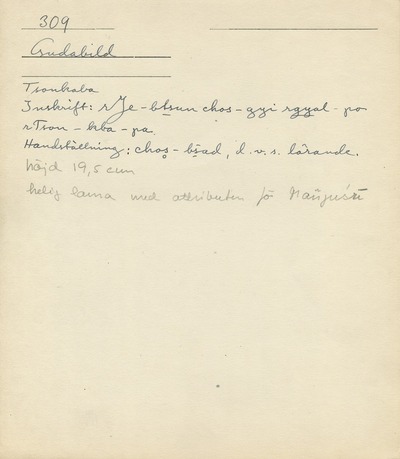 309
Gudabild
Tsonkaba
Inskrift: rJe-btsun chos-gyi rgyal-po
rTson-kba-pa.
Handställning: chos-bśad, d.v.s. lärande.
höjd 19,5 cm
helig lama med attributen för Mañjuśrī